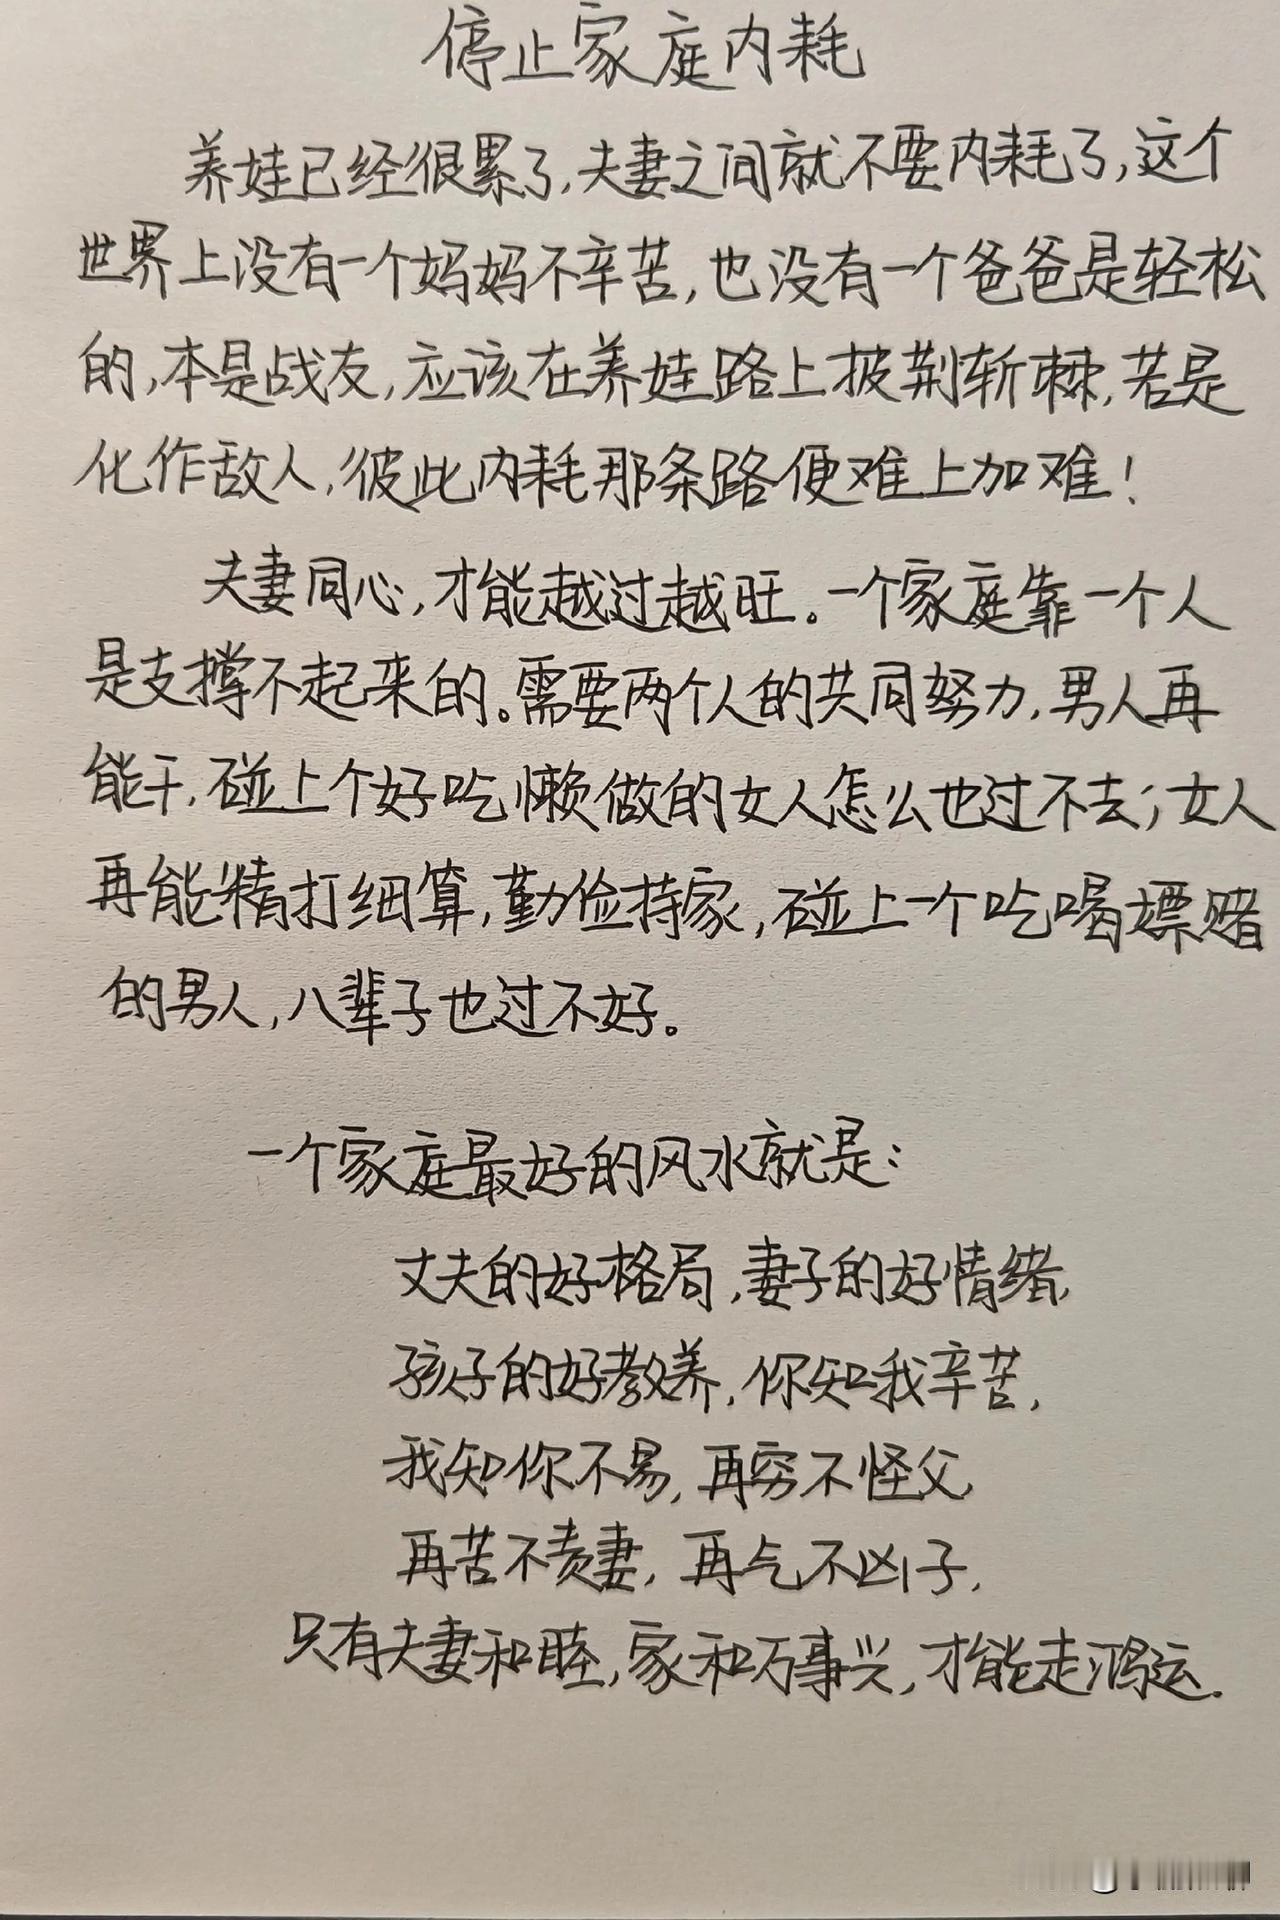 停止家庭内耗
养娃已经很累了,夫妻之间就不要内耗了,这个
世界上没有一个妈妈不辛苦,也没有一个爸爸是轻松
的,本是战友,应该在养娃路上披荆斩棘,若是
化作敌人,彼此内耗那条路便难上加难!
夫妻同心,才能越过越旺。一个家庭靠一个人
是支撑不起来的。需要两个人的共同努力,男人再
能干,碰上个好吃懒做的女人怎么也过不去;女人
再能精打细算,勤俭持家,碰上一个吃喝嫖赌
的男人,八辈子也过不好。
一个家庭最好的风水就是:
丈夫的好格局,妻子的好情绪,
孩子的好教养,你知我辛苦,
我知你不易,再穷不怪父,
再苦不责妻,再气不凶子,
只有夫妻和睦,家和万事兴,才能走鸿运.